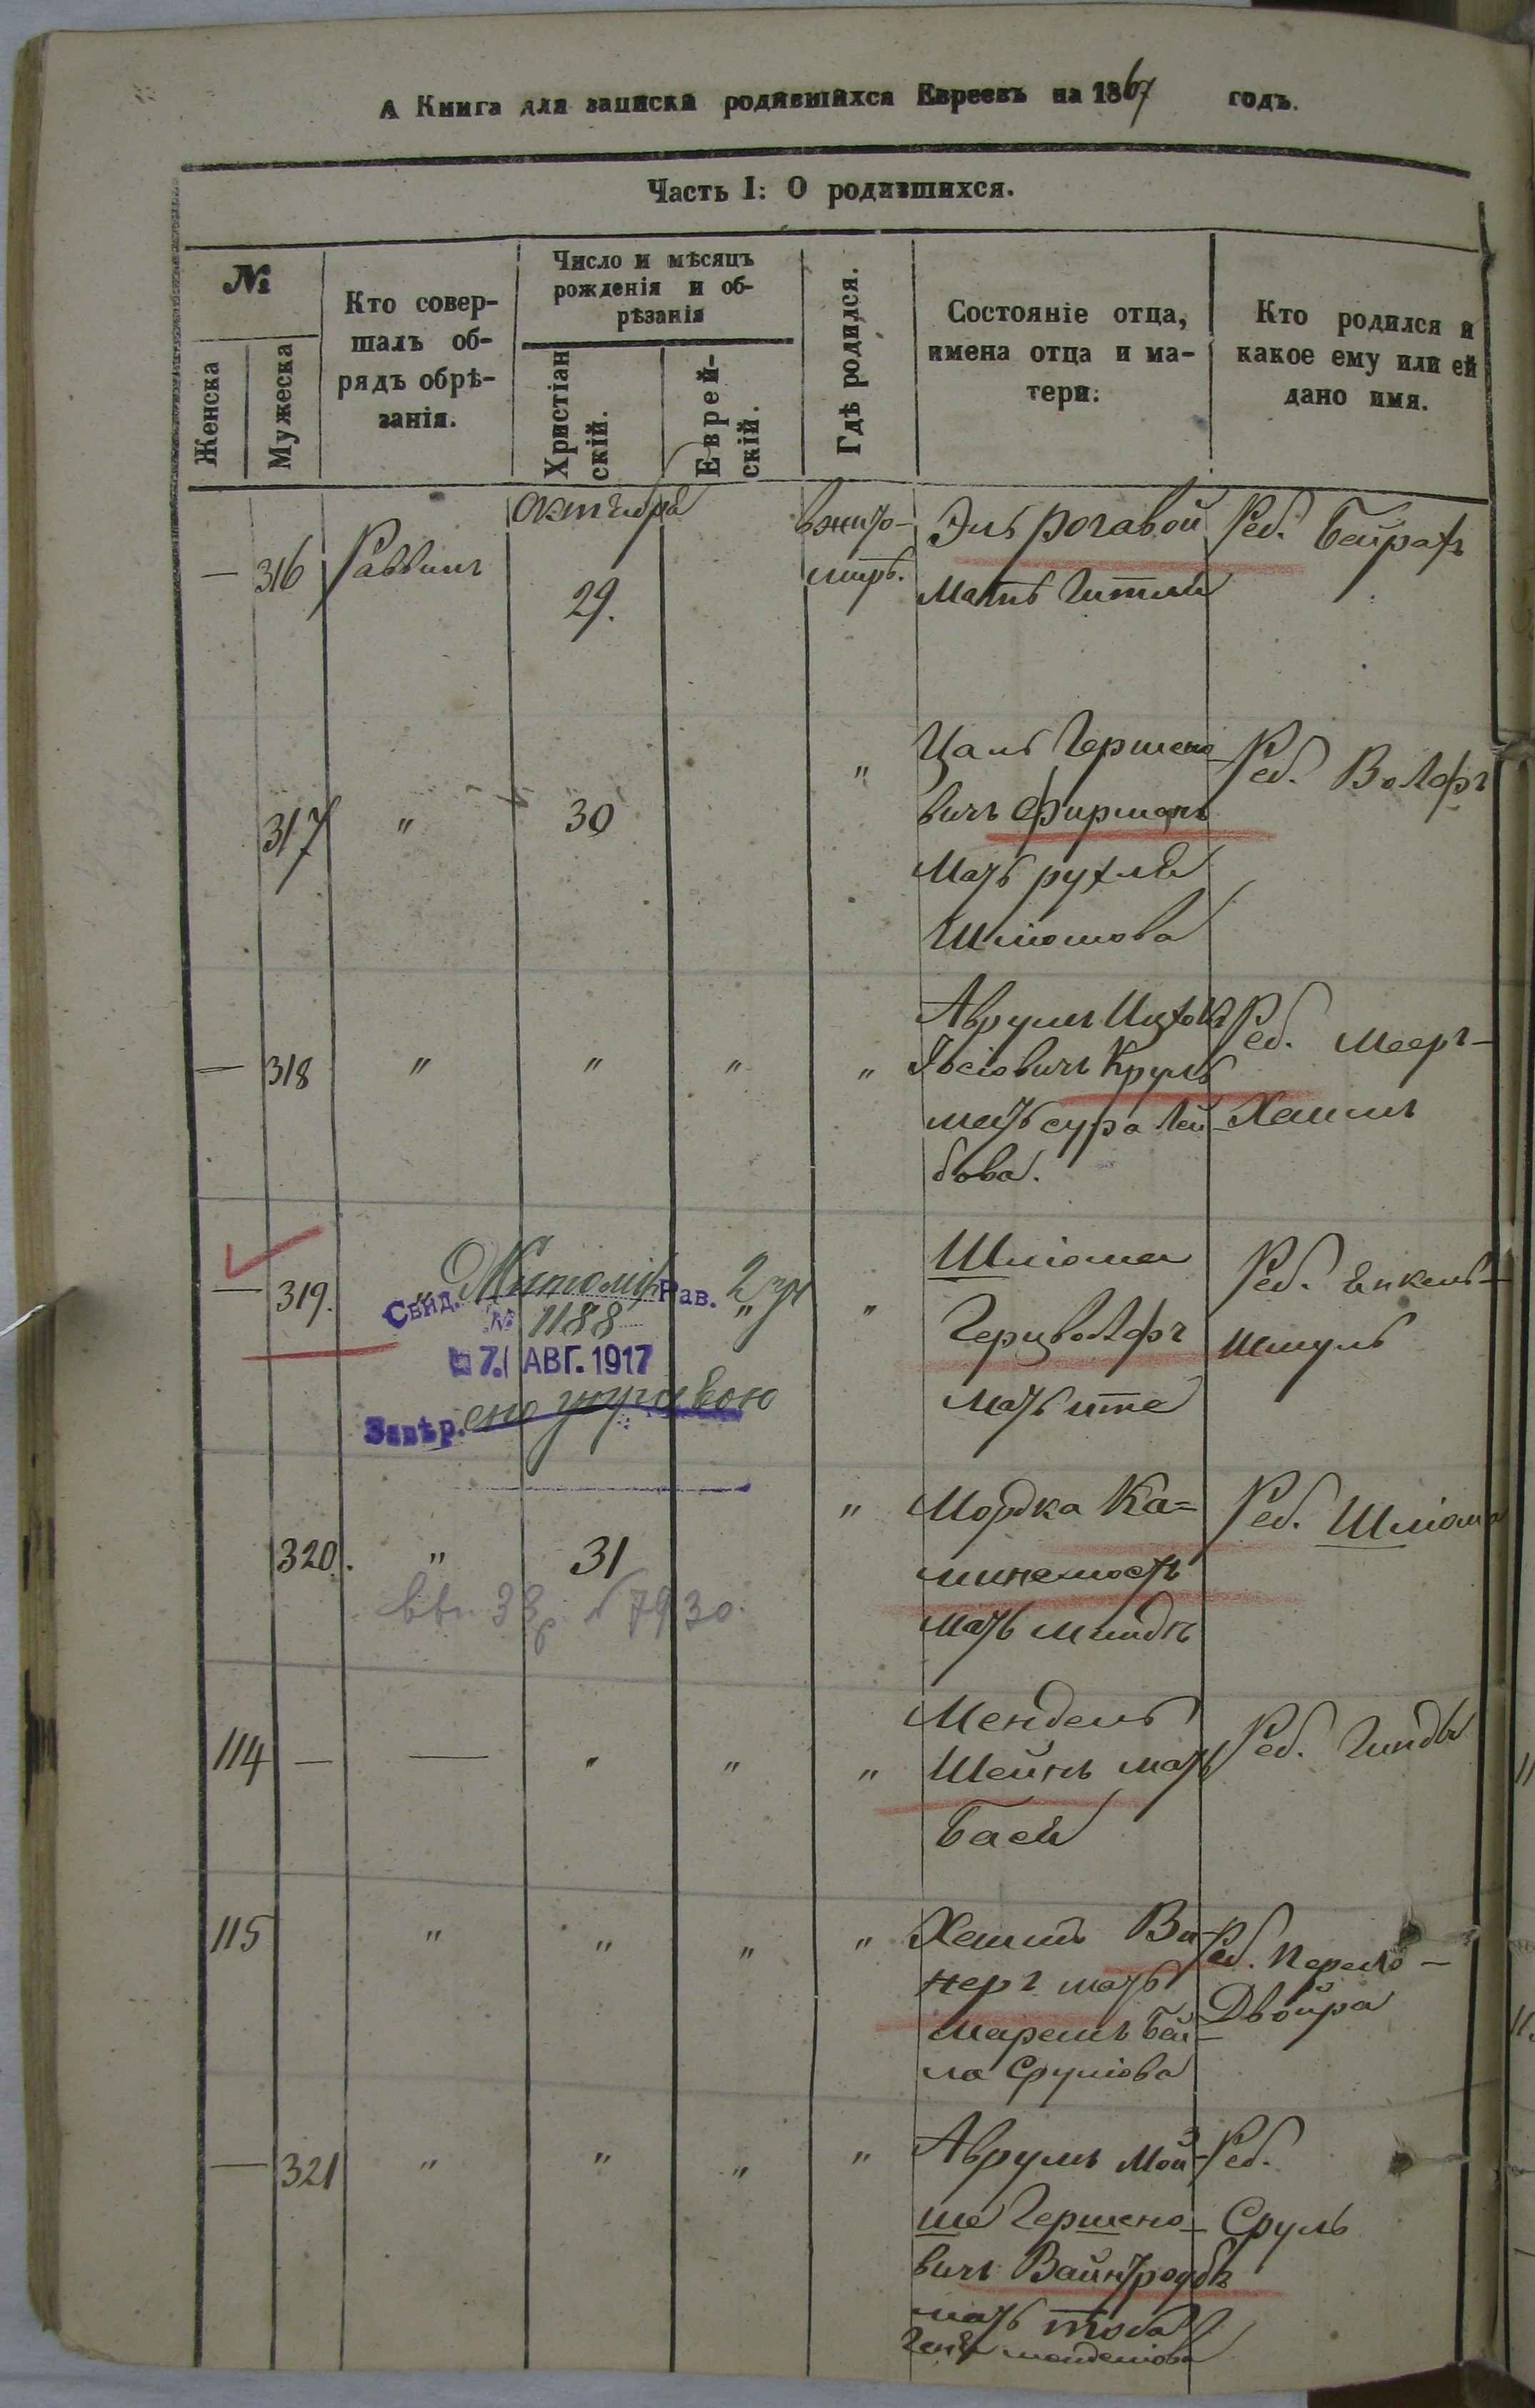 А Книга для записки родившихся Евреевъ на 1867 годъ.
Часть I: О родившихся.
№
Женска
Мужеска
Кто совер-
шалъ об-
рядъ обрѣ-
занія.
Число и мѣсяцъ
рожденія и об-
рѣзанія
Христіан
скій.
Еврей-
скій.
Гдѣ родился.
Состояніе отца,
имена отца и ма-
тери.
Кто родился и
какое ему или ей
дано имя.
Октября
— 316 Раввинъ 29.
в жито-
мирѣ.
Эль Рогавой
Мать Гитля
Реб.
317 " 30 "
Цаль Гершено
вичъ Фирманъ
Мать рухля
Шліомова
Реб. Волфъ
— 318 " " " "
Аврумъ Ицхокъ
Іосіовичъ Круль
мать сура Лей
бова.
Реб. Мееръ-
Хаимъ
— 319. " "
Свид. Житомір. Рав.
№ 1188
7. АВГ. 1917
Завѣр.
Шліома
Герцволфъ
Мать ита
Реб. Янкель-
Шмуль
320. " 31 "
№ 7930.
Мордка Ка=
минемостъ
Мать
Реб. Шліома
114 — — " " "
Мендель
Шейнъ мать
Бася
Реб. Гинда
115 " " " "
Хаимъ Ви-
неръ мать
Маремъ Бей-
ла Сруліова
Реб. Перель-
Двойра
— 321 " " " "
Аврумъ Мой-
ше Гершено-
вичъ Вайнтроубъ
мать тоба
Геня менделіова
Реб.
Сруль